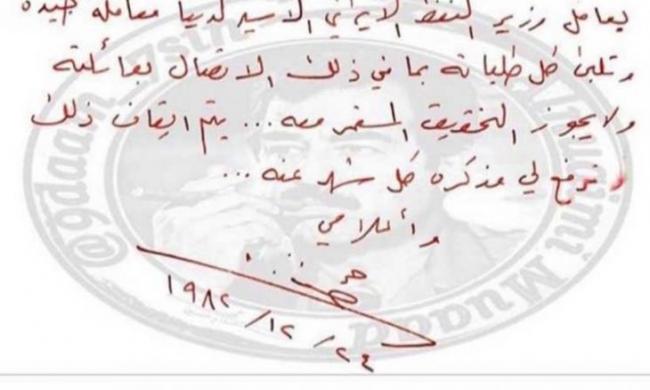 يعامل وزير النفط الايراني الاسير لدينا معاملة جيدة
وتلبى كل طلباته بما في ذلك الاتصال بعائلته
ولا يجوز التحقيق المستمر معه... يتم ايقاف ذلك
وترفع لي مذكره كل شهر عنه...
١٩٨٢/١٢/٢٤
@9daam_7sin
Muaad